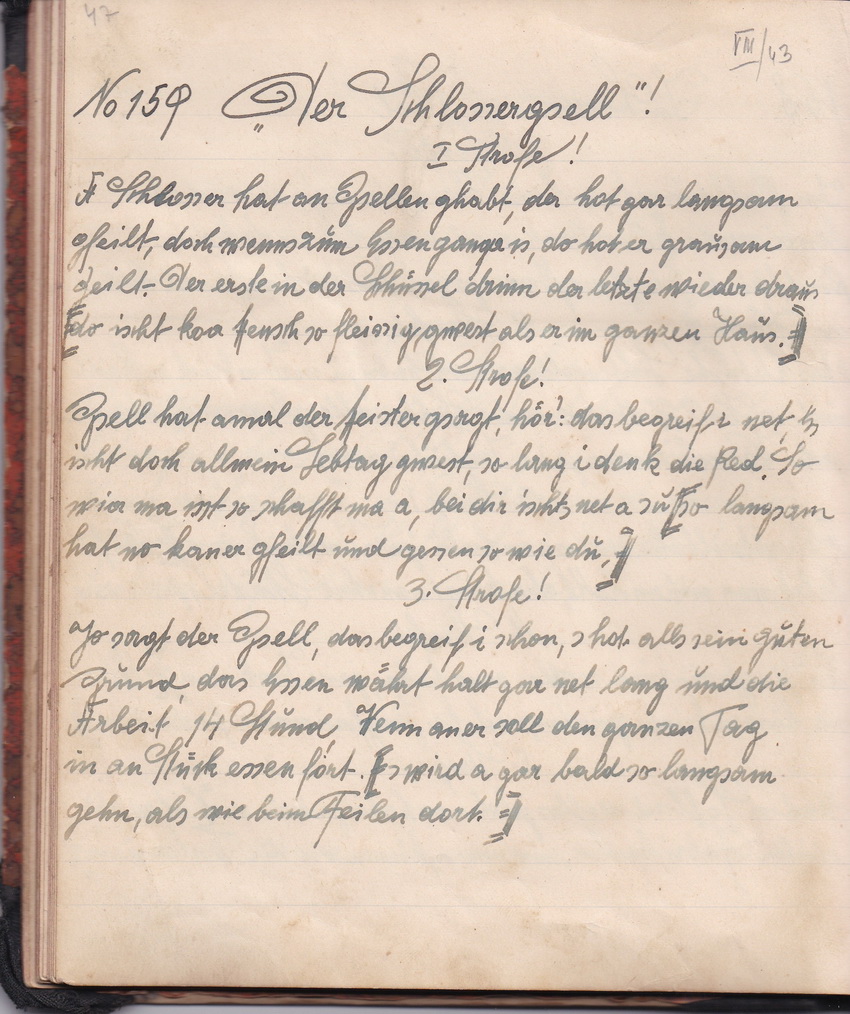 47
VIII/43
No 159 „Der Schlossergsell"!
I Strofe!
A Schlosser hat an Gsellen ghabt, der hot gar langsam
gfeilt, doch wenns zum Essen ganga is, do hot er grausam
geilt. Der erste in der Schüssel drinn der letzte wieder draus
do ischt koa Mensch so fleissig, gwest als er im ganzen Haus.
2. Strofe!
Gsell hat amal der Meister gsagt, hör': das begreif i net, 's
ischt doch all mein Lebtag gwest, so lang i denk die Red. So
wia ma isst so schafft ma a, bei dir ischts net a su, so langsam
hat no kaner gfeilt und gessen so wie du,
3. Strofe!
Jo sagt der Gsell, das begreif i schon, s hat alls sein guten
Grund, das Essen währt halt gar net lang und die
Arbeit, 14 Stund, Wenn aner soll den ganzen Tag
in an Stück essen fort. Es wird a gar bald so langsam
gehn, als wie beim Feilen dort.